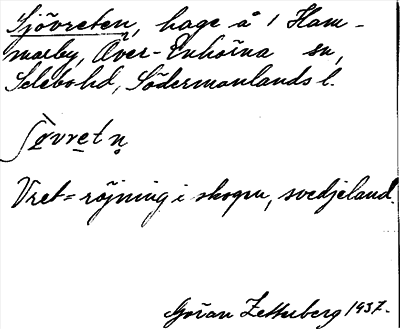 Sjövreten, hage å 1 Ham-
marby, Över-Enhörna sn,
Selebo hd, Södermanlands l.
ʃø̀vretn̥
Vret = röjning i skogen, svedjeland.
Göran Zetterberg 1937.